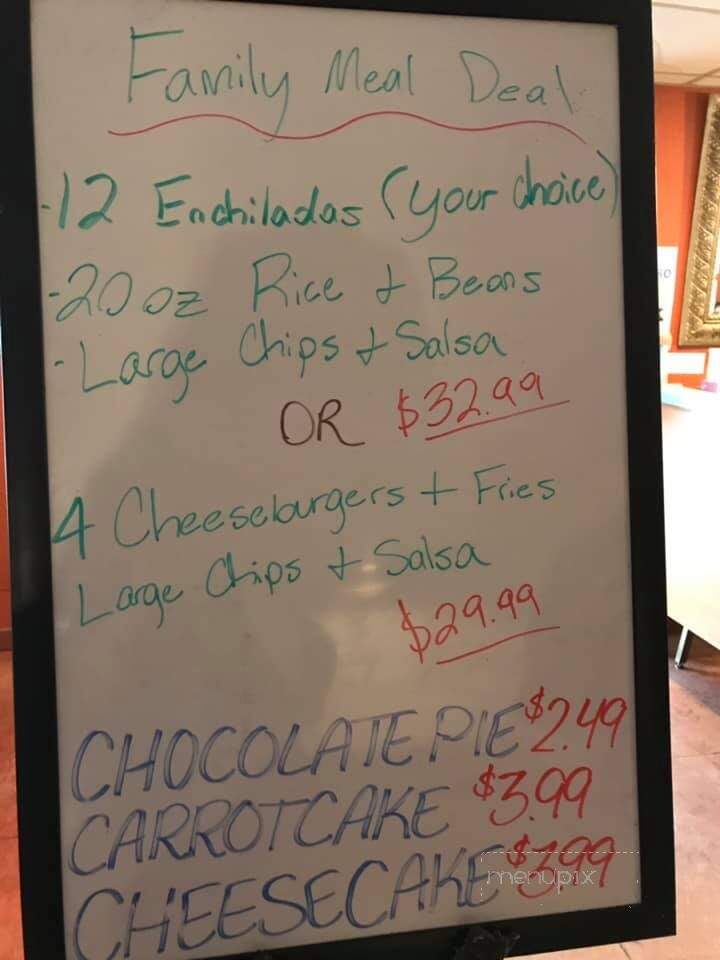 Family Meal Deal
-12 Enchiladas (your choice)
-20 oz Rice + Beans
-Large Chips + Salsa
OR $32.99
4 Cheeseburgers + Fries
Large Chips + Salsa
$29.99
CHOCOLATE PIE $2.49
CARROTCAKE $3.99
CHEESECAKE $3.99
menupix